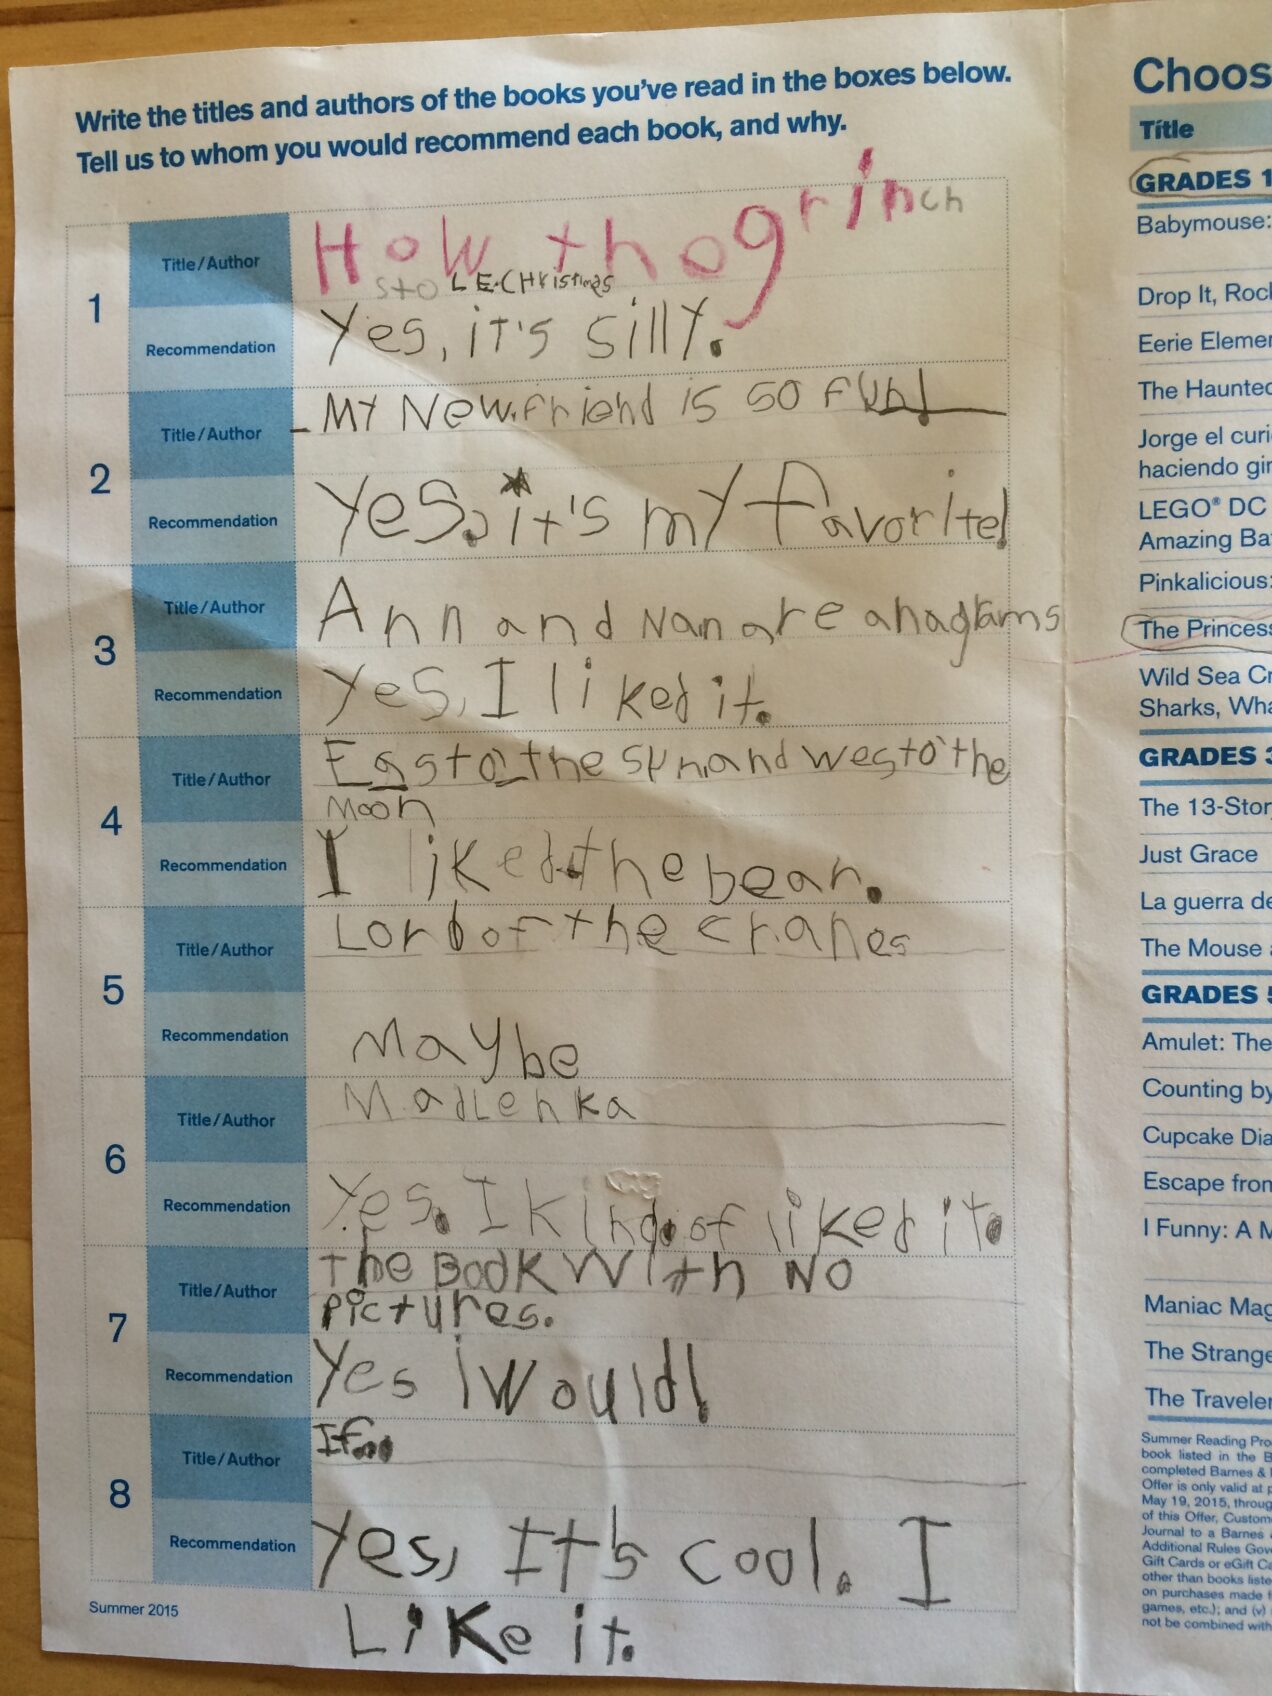 Write the titles and authors of the books you've read in the boxes below.
Tell us to whom you would recommend each book, and why.
1
Title/Author
How tho grinch
stoLE.CHristmas
Recommendation
Yes, it's silly.
2
Title/Author
My New.friend is so fun!
Recommendation
Yes. it's my favorite!
3
Title/Author
Ann and Nan are anagrams
Recommendation
Yes, I liked it.
4
Title/Author
Eas to the sun,and wes to the
moon
Recommendation
I liked the bear.
5
Title/Author
Lord of the cranes
Recommendation
Maybe
6
Title/Author
MadLenka
Recommendation
Yes. I kind of liked it.
7
Title/Author
The Book With No
Pictures.
Recommendation
Yes i would!
8
Title/Author
If...
Recommendation
Yes, It's cool. I
Like it.
Summer 2015
Choos
Title
GRADES 1
Babymouse:
Drop It, Rock
Eerie Elemen
The Haunted
Jorge el curi
haciendo gir
LEGO® DC
Amazing Ba
Pinkalicious:
The Princess
Wild Sea Cr
Sharks, Wha
GRADES 3
The 13-Stor
Just Grace
La guerra de
The Mouse
GRADES 5
Amulet: The
Counting by
Cupcake Dia
Escape from
I Funny: A M
Maniac Mag
The Strange
The Traveler
Summer Reading Pro
book listed in the B
completed Barnes &
Offer is only valid at p
May 19, 2015, throug
of this Offer, Custom
Journal to a Barnes
Additional Rules Gov
Gift Cards or eGift Ca
other than books liste
on purchases made f
games, etc.); and (v)
not be combined with